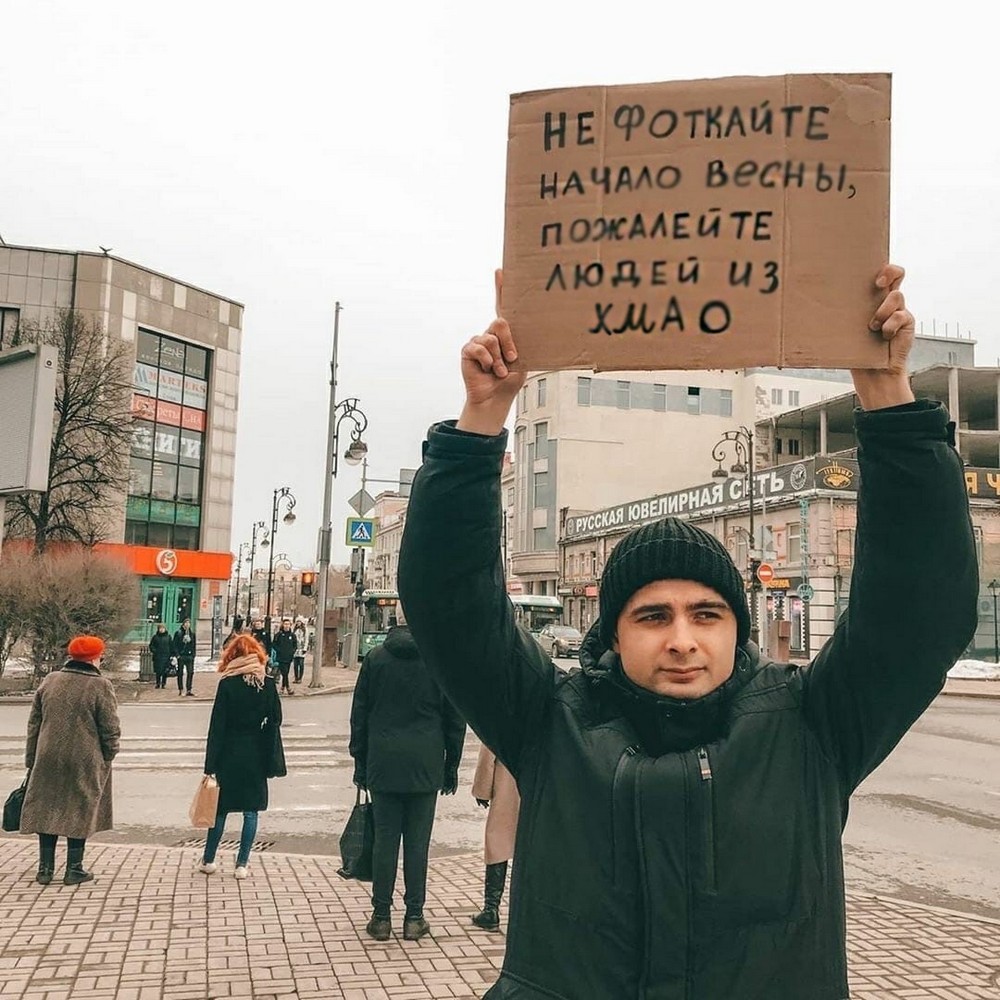 НЕ ФОТКАЙТЕ
НАЧАЛО ВЕСНЫ,
ПОЖАЛЕЙТЕ
ЛЮДЕЙ ИЗ
ХМАО
РУССКАЯ ЮВЕЛИРНАЯ СЕТЬ
КНИГИ
5